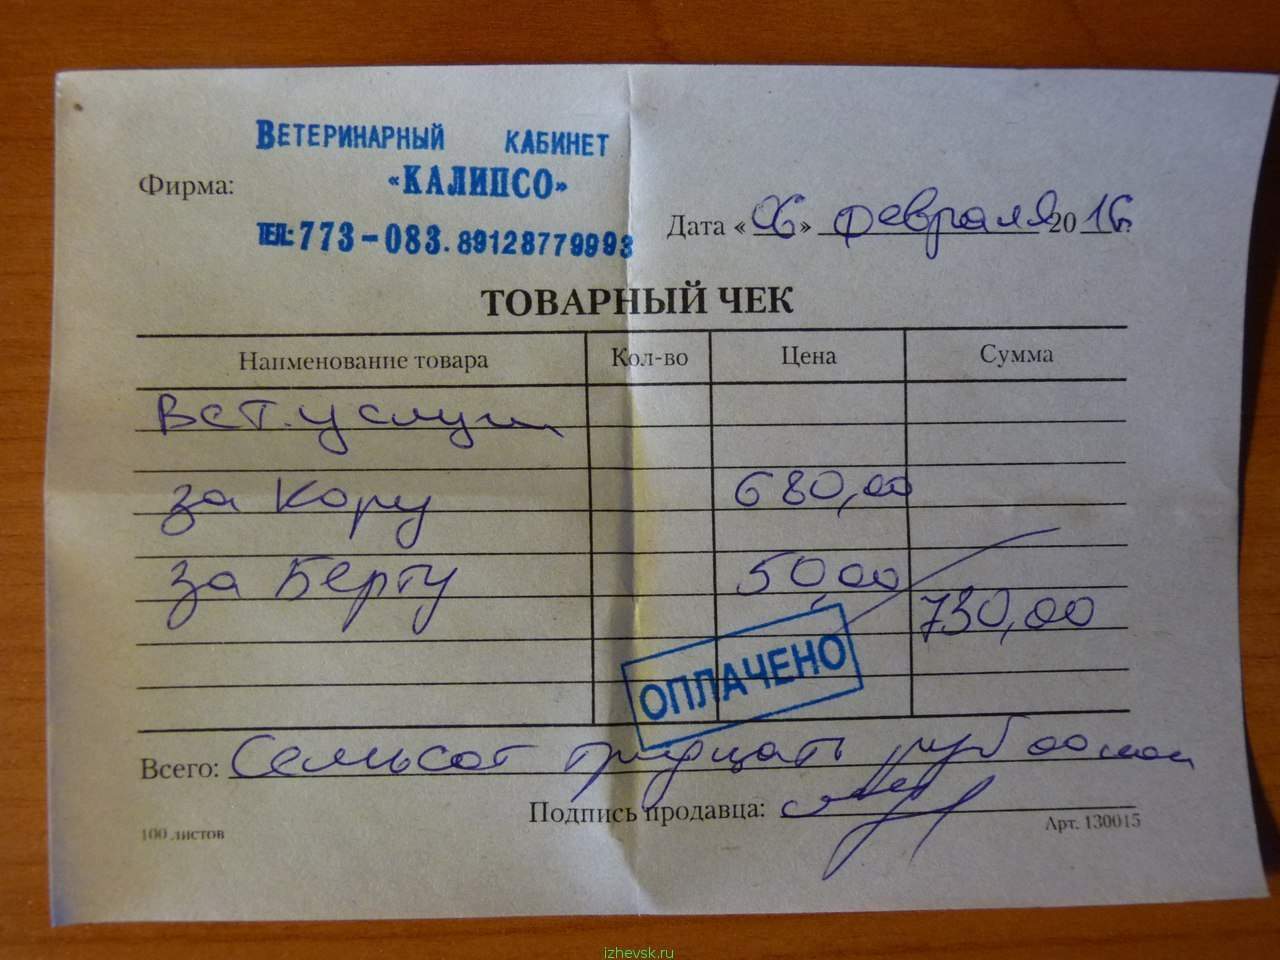 ВЕТЕРИНАРНЫЙ КАБИНЕТ
Фирма: «КАЛИПСО»
ТЕЛ.: 773-083. 89128779993
Дата «06» февраля 2016
ТОВАРНЫЙ ЧЕК
Наименование товара Кол-во Цена Сумма
Вет. услуги
за Кору 680,00
за Берту 50,00
730,00
ОПЛАЧЕНО
Всего: Семьсот тридцать руб 00 коп
Подпись продавца:
100 листов Арт. 130015
izhevsk.ru